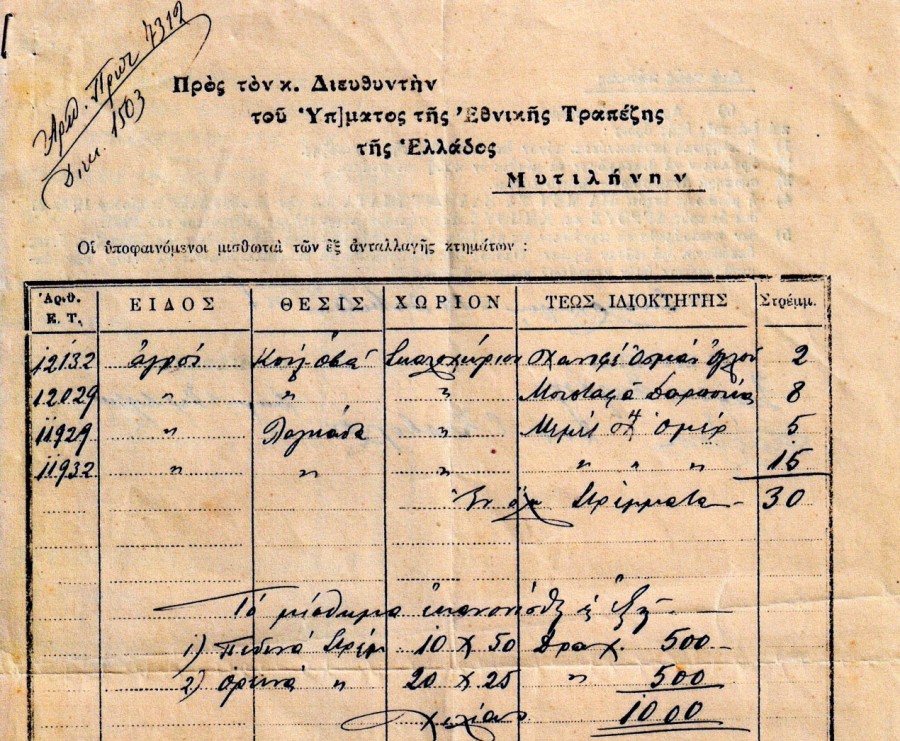 Ἀριθ. Πρωτ 4312
Διεκ. 1503
Πρὸς τὸν κ. Διευθυντὴν
τοῦ Ὑπ]ματος τῆς Ἐθνικῆς Τραπέζης
τῆς Ἑλλάδος
Μυτιλήνην
Οἱ ὑποφαινόμενοι μισθωταὶ τῶν ἐξ ἀνταλλαγῆς κτημάτων :
Ἀριθ. Κ. Τ. ΕΙΔΟΣ ΘΕΣΙΣ ΧΩΡΙΟΝ ΤΕΩΣ ΙΔΙΟΚΤΗΤΗΣ Στρέμμ.
12132 ἀγροί Σκαλοχώριον 2
12029 〃 〃 〃 Μουσταφᾶ 8
11929 〃 Λαγκάδα 〃 Μεμέτ Ὀμέρ 5
11932 〃 〃 〃 〃 〃 〃 15
Ἐν ὅλῳ Στρέμματα 30
Τό μίσθωμα ἑξῆς
1) Πεδινά Στρέμ 10 Χ 50 Δραχ. 500
2) ὀρεινά 〃 20 Χ 25 〃 500
χιλίας 1000